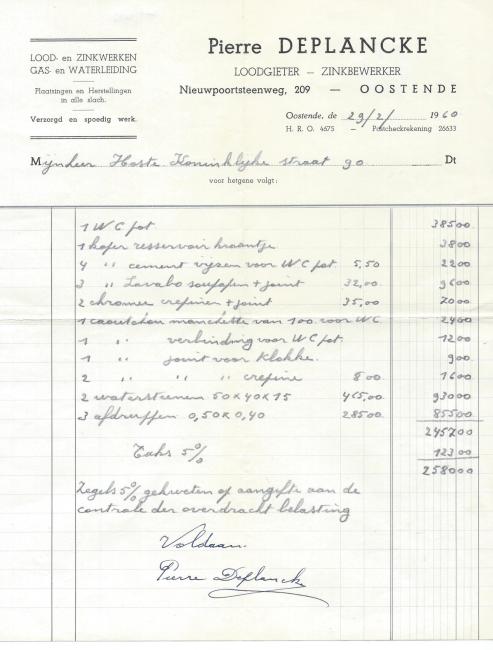 LOOD- en ZINKWERKEN
GAS- en WATERLEIDING
Plaatsingen en Herstellingen
in alle slach.
Verzorgd en spoedig werk.
Pierre DEPLANCKE
LOODGIETER — ZINKBEWERKER
Nieuwpoortsteenweg, 209 — OOSTENDE
Oostende, de 29/2/ 1960
H. R. O. 4675 — Postcheckrekening 26633
Mijnheer Hoste Koninklijke straat 90 Dt
voor hetgene volgt:
1 WC pot 38500
1 koper resservoir kraantje 3800
4 " cement vijzen voor WC pot 5,50 2200
3 " Lavabo soupapen + joint 32,00 9600
2 chromee crepinen + joint 35,00 7000
1 caoutchou manchette van 100 voor WC 2400
1 " verbinding voor WC pot. 1200
1 " joint voor Klokke. 900
2 " " " crepine 800 1600
2 watersteenen 50 x 40 x 15 465,00 93000
3 afdruppen 0,50 x 0,40 28500 85500
245700
Taks 5% 12300
258000
Zegels 5% gekweten op aangifte aan de
controle der overdracht belasting
Voldaan.
Pierre Deplancke